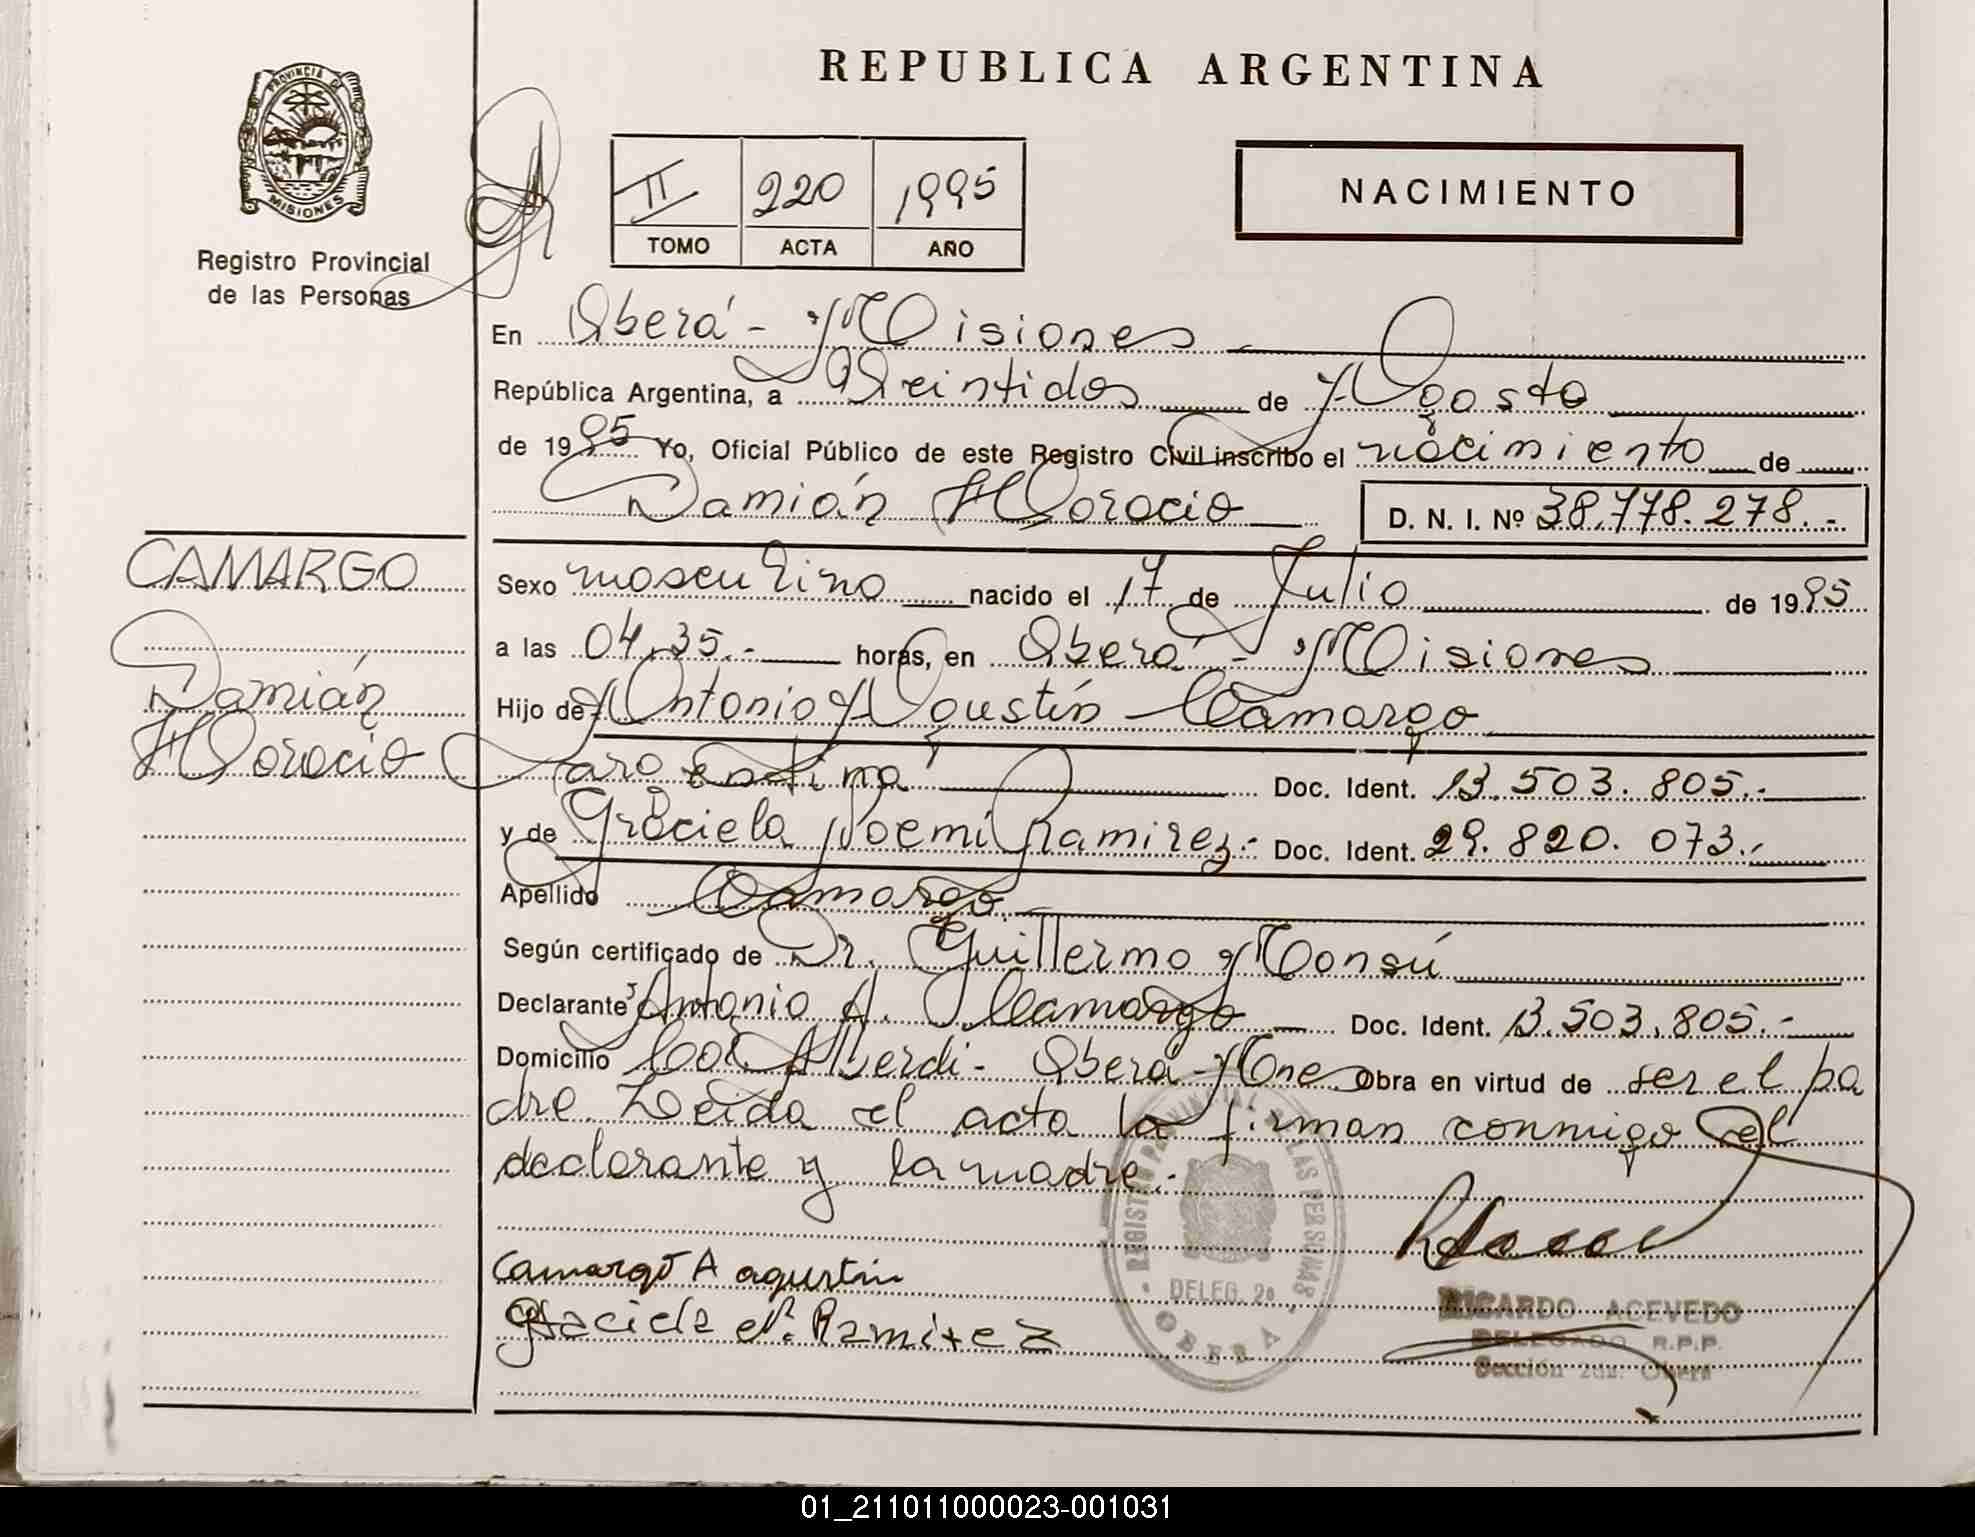 REPUBLICA ARGENTINA
PROVINCIA DE
MISIONES
Registro Provincial
de las Personas
II 220 1995
TOMO ACTA AÑO
NACIMIENTO
En Oberá - Misiones
República Argentina, a Veintidos de Agosto
de 1995 Yo, Oficial Público de este Registro Civil inscribo el nacimiento de
Damián Horacio D. N. I. Nº 38.778.278.-
CAMARGO
Damián
Horacio
Sexo masculino nacido el 17 de Julio de 1995
a las 04,35.- horas, en Oberá - Misiones
Hijo de Antonio Agustín Camargo
Doc. Ident. 13.503.805.-
y de Graciela Noemí Ramirez.- Doc. Ident. 29.820.073.-
Apellido Camargo
Según certificado de Dr. Guillermo Monsú
Declarante Antonio A. Camargo Doc. Ident. 13.503.805.-
Domicilio Col Alberdi - Oberá - Mnes Obra en virtud de ser el pa
dre. Leida el acta la firman conmigo el
declarante y la madre.-
Camargo A agustin
Graciela N. Ramirez
REGISTRO PROVINCIAL DE LAS PERSONAS
DELEG. 2ª
OBERA
RICARDO ACEVEDO
DELEGADO R.P.P.
Sección 2da. Oberá
01_211011000023-001031